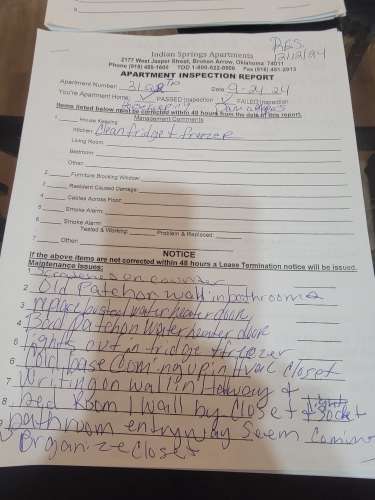 PaSS
12/12/24
Indian Springs Apartments
2177 West Jasper Street, Broken Arrow, Oklahoma 74011
Phone (918) 455-1600 TDD 1-800-522-8506 Fax (918) 451-2913
APARTMENT INSPECTION REPORT
Apartment Number: Date 9-21-24
You're Apartment Home: PASSED Inspection FAILED Inspection
Items listed below must be corrected within 48 hours from the date of this report.
Management Comments
1. House Keeping:
Kitchen: Clean fridge & freezer
Living Room:
Bedroom:
Other:
2. Furniture Blocking Window:
3. Resident Caused Damage:
4. Cables Across Floor:
5. Smoke Alarm:
6. Smoke Alarm:
Tested & Working: Problem & Replaced:
7. Other:
NOTICE
If the above items are not corrected within 48 hours a Lease Termination notice will be issued.
Maintenance Issues:
1 on counter
2 Old Patch on wall in bathroom
3 replace busted water heater door
4 Bad Patch on Water heater door
5 lights out in fridge & freezer
6 Mold base Coming up in Hvac closet
7 Writing on wall in Hallway &
8 bed Room 1 Wall by Closet & Socket
bathroom entryway Seem Coming
Organize Closet